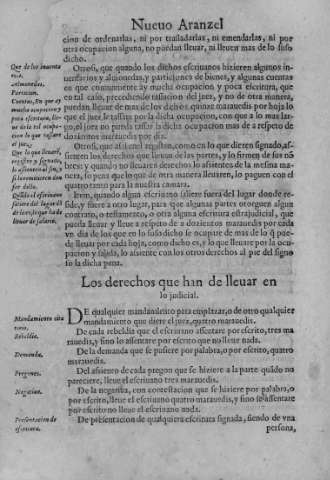 Nueuo Aranzel
cion de ordenarlas, ni por trasladarlas, ni emendarlas, ni por
otra ocupacion alguna, no puedan lleuar, ni lleuen mas de lo suso
dicho.
Otrosi, que quando los dichos escriuanos hizieren algunos in-
uentarios y almonedas, y particiones de bienes, y algunas cuentas
en que comunmente ay mucha ocupacion y poca escritura, que
en tal caso, precediendo tassacion del juez, y no de otra manera,
puedan lleuar de mas de los dichos quinze marauedis por hoja lo
que el juez le tassare por la dicha ocupacion, con que a lo mas lar-
go, el juez no pueda tassar la dicha ocupacion mas de a respeto de
dozientos marauedis por dia.
Otrosi, que assi en el registro, como en lo que dieren signado, as-
sienten los derechos que lleuan de las partes, y lo firmen de sus nō
bres; y quando no lleuaren derechos lo assienten de la mesma ma-
nera, so pena que lo que de otra manera lleuaren, lo paguen con el
quatro tanto para la nuestra camara.
Item, quando algun escriuano saliere fuera del lugar donde re-
side, y fuere a otro lugar, para que algunas partes otorguen algun
contrato, o testamento, o otra alguna escritura estrajudicial, que
pueda lleuar y lleue a respeto de a dozientos marauedis por cada
vn dia de los que en lo suso dicho se ocupare de mas de lo q̄ pue-
de lleuar por cada hoja, como dicho es, y lo que lleuare por la ocu-
pacion y salida, lo assiente con los otros derechos al pie del signo
so la dicha pena.
Los derechos que han de lleuar en
lo judicial.
DE qualquier mandamiento para emplazar, o de otro qualquier
mandamiento que diere el juez, quatro marauedis.
De cada rebeldia que el escriuano assentare por escrito, tres ma
rauedis, y sino lo assentare por escrito que no lleue nada.
De la demanda que se pusiere por palabra, o por escrito, quatro
marauedis.
Del assiento de cada pregon que se hiziere a la parte quādo no
pareciere, lleue el escriuano tres marauedis.
De la negatiua, con contestacion que se hiziere por palabra, o
por escrito, lleue el escriuano quatro marauedis, y sino se assentare
por escrito no lleue el escriuano nada.
De presentacion de qualquiera escritura signada, siendo de vna
persona,
Mandamiento cita
torio.
Rebeldia.
Demanda.
Pregones.
Negatiua.
Presentacion de
escritura.